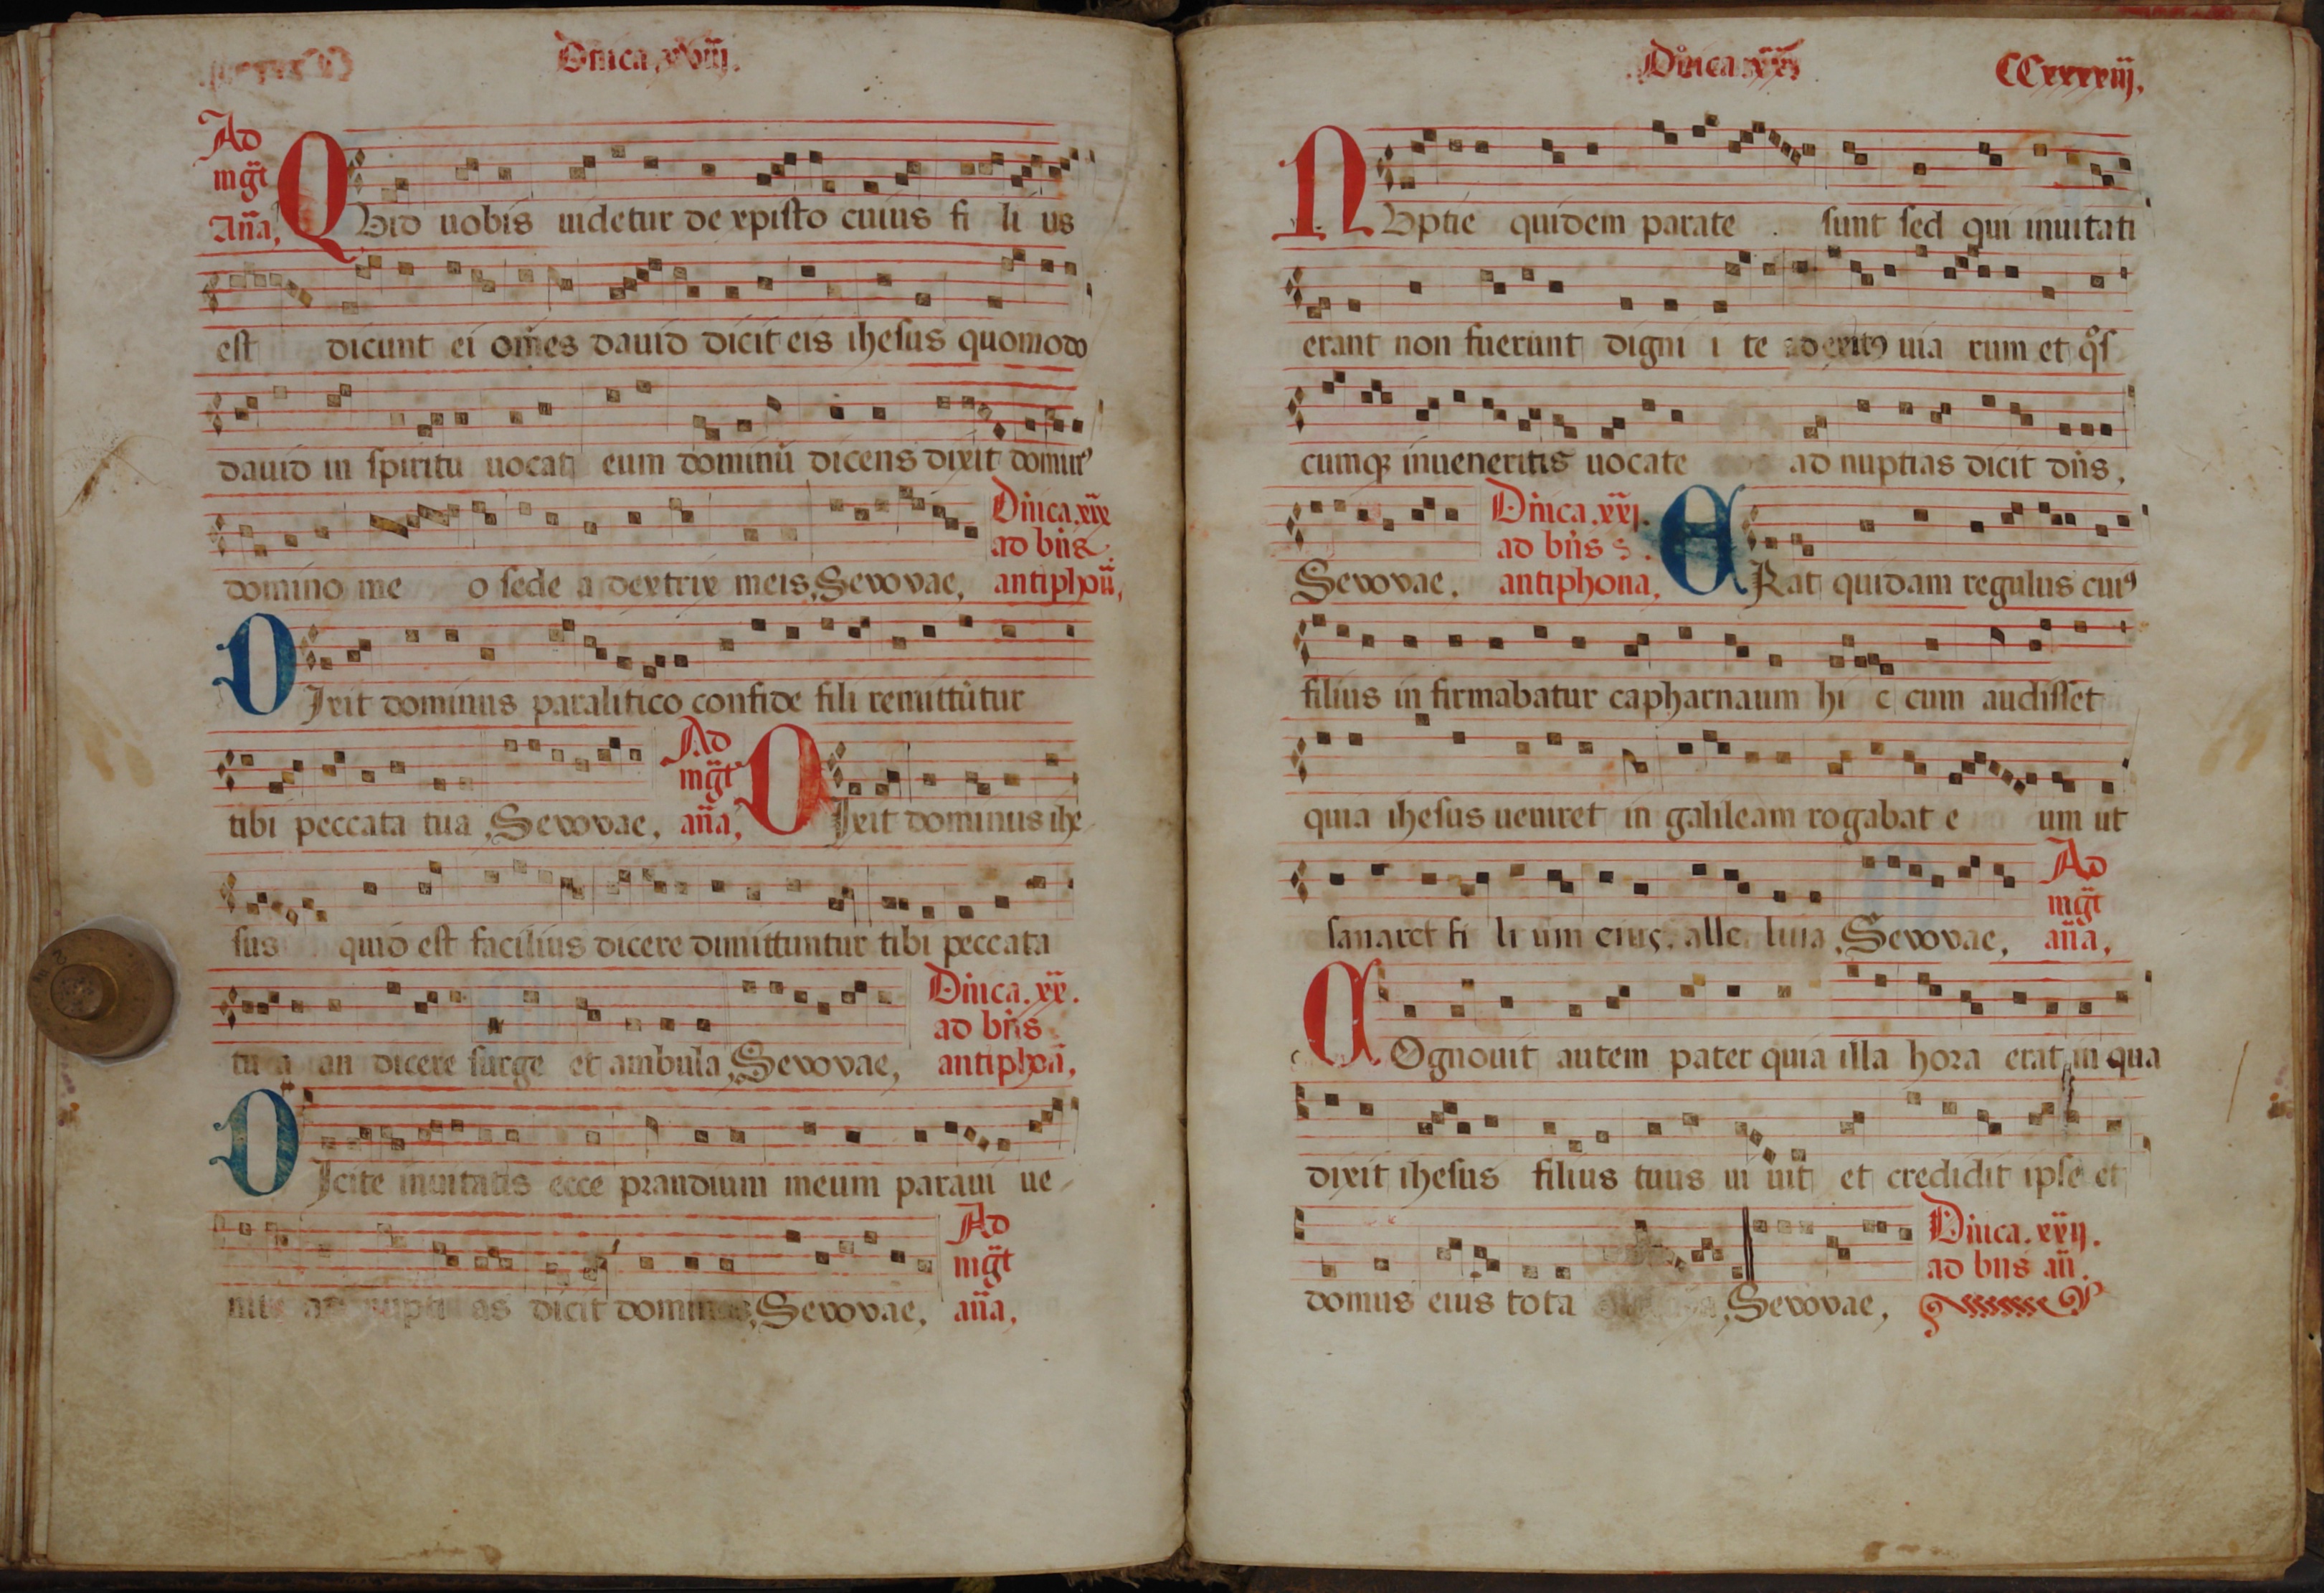 Dnica xviij.
Ad
mgt
Aña,
QVid uobis uidetur de xpisto cuius fi li us
est dicunt ei omes dauid dicit eis ihesus quomodo
dauid in spiritu uocat eum dominũ dicens dixit
domino me o sede a dextrix meis, Sevovae,
Dnica. xix
ad bñs
antiphoñ,
DIxit dominus paralitico confide fili remittũtur
tibi peccata tua, Sevovae,
Ad
mgt
aña,
DIxit dominus ihe
sus quid est facilius dicere dimittuntur tibi peccata
tu a an dicere surge et ambula, Sevovae,
Dnica. xx.
ad bñs
antiphoã,
DIcite inuitatis ecce prandium meum paraui ue
nite ad nupti as dicit dominus, Sevovae,
Ad
mgt
aña,
Dñica xx
CCxxxxiij.
NVptie quidem parate sunt sed qui inuitati
erant non fuerunt digni i te ad exitꝰ uia rum et qͦs
cumqꝫ inueneritis uocate ad nuptias dicit dñs,
Sevovae,
Dnica. xxj.
ad bñs
antiphona,
ERat quidam regulus cuiꝰ
filius in firmabatur capharnaum hi c cum audisset
quia ihesus ueniret in galileam rogabat e um ut
sanaret fi li um eius. alle luia, Sevovae,
Ad
mgt
aña,
COgnouit autem pater quia illa hora erat in qua
dixit ihesus filius tuus ui uit et credidit ipse et
domus eius tota Sevovae,
Dnica. xxij.
ad bñs añ.